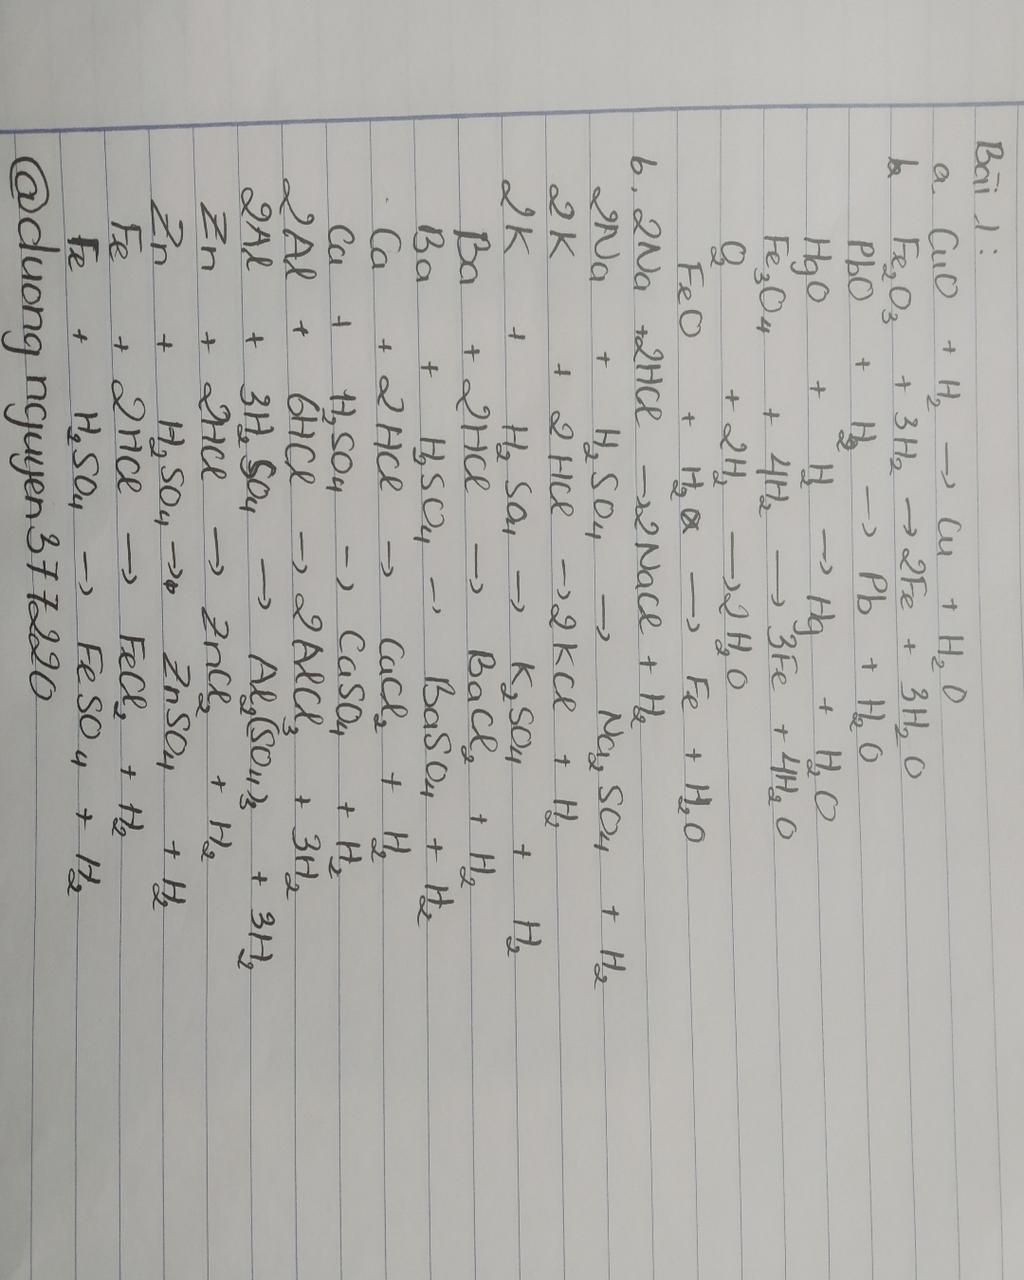 Bài 1:
a CuO + H₂ → Cu + H₂O
Fe₂O₃ + 3H₂ → 2Fe + 3H₂O
PbO + H₂ → Pb + H₂O
HgO + H₂ → Hg + H₂O
Fe₃O₄ + 4H₂ → 3Fe + 4H₂O
O₂ + 2H₂ → 2H₂O
FeO + H₂ → Fe + H₂O
b, 2Na + 2HCl → 2NaCl + H₂
2Na + H₂SO₄ → Na₂SO₄ + H₂
2K + 2HCl → 2KCl + H₂
2K + H₂SO₄ → K₂SO₄ + H₂
Ba + 2HCl → BaCl₂ + H₂
Ba + H₂SO₄ → BaSO₄ + H₂
Ca + 2HCl → CaCl₂ + H₂
Ca + H₂SO₄ → CaSO₄ + H₂
2Al + 6HCl → 2AlCl₃ + 3H₂
2Al + 3H₂SO₄ → Al₂(SO₄)₃ + 3H₂
Zn + 2HCl → ZnCl₂ + H₂
Zn + H₂SO₄ → ZnSO₄ + H₂
Fe + 2HCl → FeCl₂ + H₂
Fe + H₂SO₄ → FeSO₄ + H₂
@duongnguyen377220